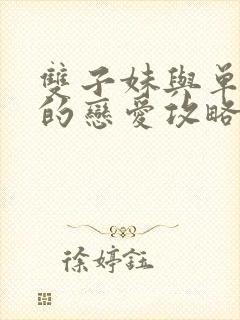 雙子妹與單
的戀愛攻略
徐婷鈺